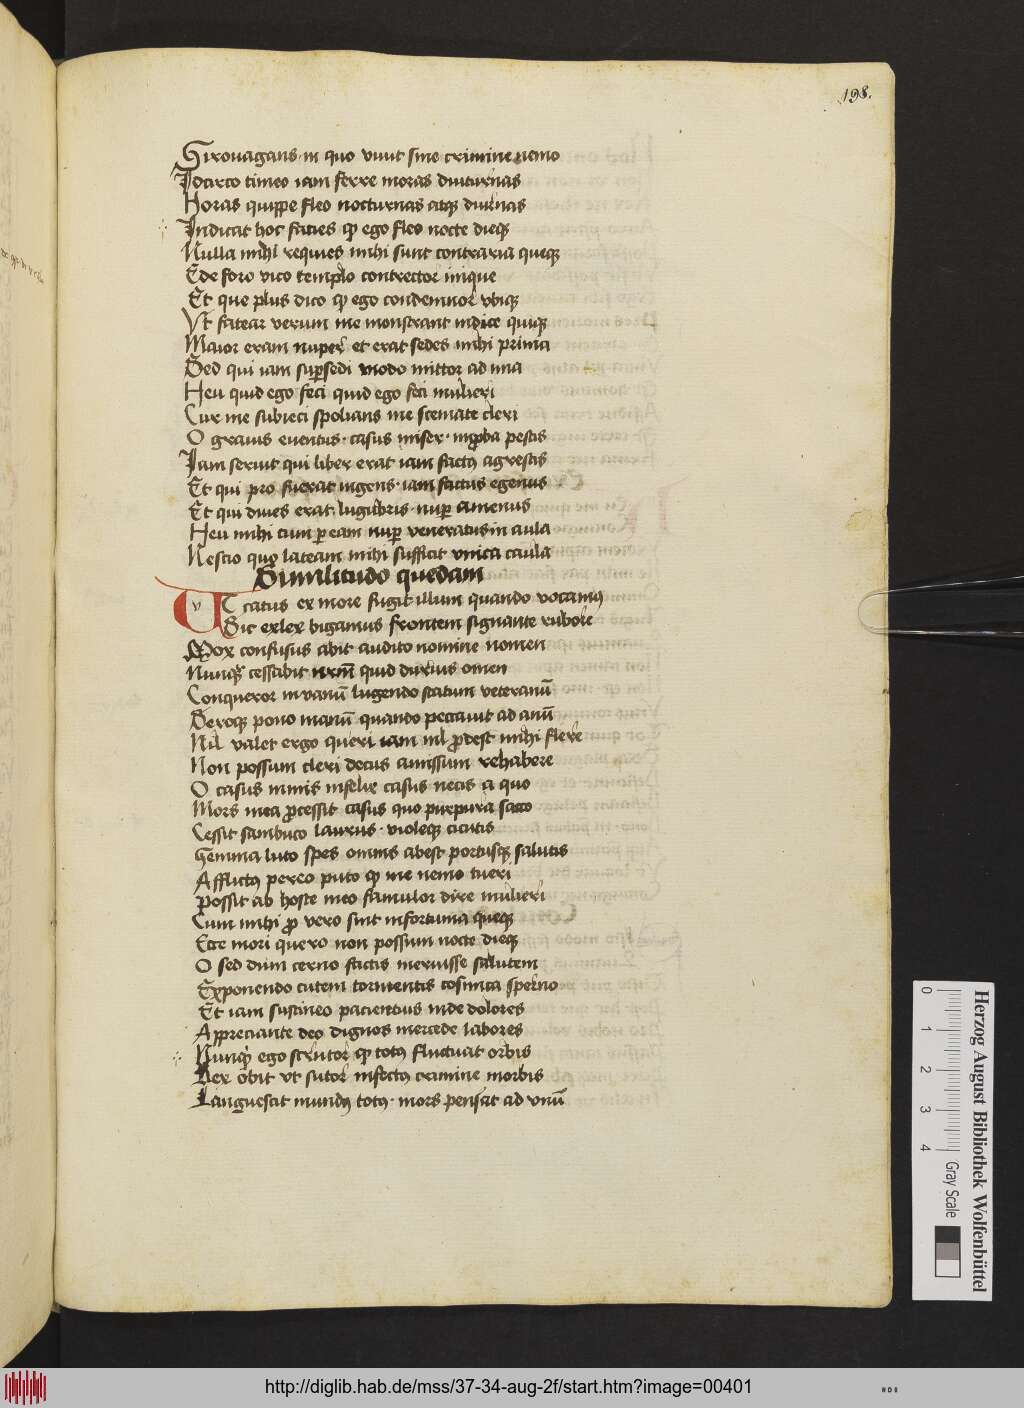 198.
Girouagans in quo viuit sine crimine nemo
Idcirco timeo iam ferre moras diuturnas
Horas quippe fleo nocturnas atqꝫ diurnas
Indicat hoc facies ꝙ ego fleo nocte dieqꝫ
Nulla michi requies michi sunt contraria queqꝫ
Ede foro vico templo contrector inique
Et que plus dico ꝙ ego condemnor vbiqꝫ
Vt fatear verum me monstrant indice quiqꝫ
Maior eram nuper et erat sedes michi prima
Sed qui iam suꝑsedi modo mittor ad ima
Heu quid ego feci quid ego feci mulieri
Cur me subieci spolians me stemate cleri
O grauis euentus casus miser inꝓba pestis
Iam seruit qui liber erat iam factꝰ agrestis
Et qui pro fuerat ingens iam factus egenus
Et qui diues erat lugubris nuꝑ amenus
Heu michi cum ꝑeam nuꝑ veneratus in aula
Nescio quo lateam michi sufficit vnica caula
Similitudo quedam
Vt catus ex more fugit illum quando vocamꝰ
Sic exlex bigamus frontem signante rubore
Mox confusus abit audito nomine nomen
Nunqͣꝫ cessabit quid durius omen
Conqueror in vanū lugendo statum veteranū
Seroqꝫ pono manū quando peccauit ad anū
Nil valet ergo queri iam nil ꝓdest michi flere
Non possum cleri decus amissum rehabere
O casus nimis infelix casus necis a quo
Mors mea ꝓcessit casus quo purpura sacco
Cessit sambuco laurus violeqꝫ cicutis
Gemma luto spes omnis abest portusqꝫ salutis
Afflictꝰ pereo puto ꝙ me nemo tueri
Possit ab hoste meo famulor dire mulieri
Cum michi ꝓ vero sint infortunia queqꝫ
Ecce mori quero non possum nocte dieqꝫ
O sed dum cerno factis meruisse salutem
Exponendo cutem tormentis cosmica sperno
Et iam sustineo paciencius inde dolores
Appreciante deo dignos mercede labores
Nunqͣꝫ ego scrutor ꝙ totꝰ fluctuat orbis
Rex obit vt sutor infectꝰ crimine morbis
Languescit mundꝰ totꝰ mors pensat ad vnū
0 1 2 3 4
Gray Scale
Herzog August Bibliothek Wolfenbüttel
http://diglib.hab.de/mss/37-34-aug-2f/start.htm?image=00401